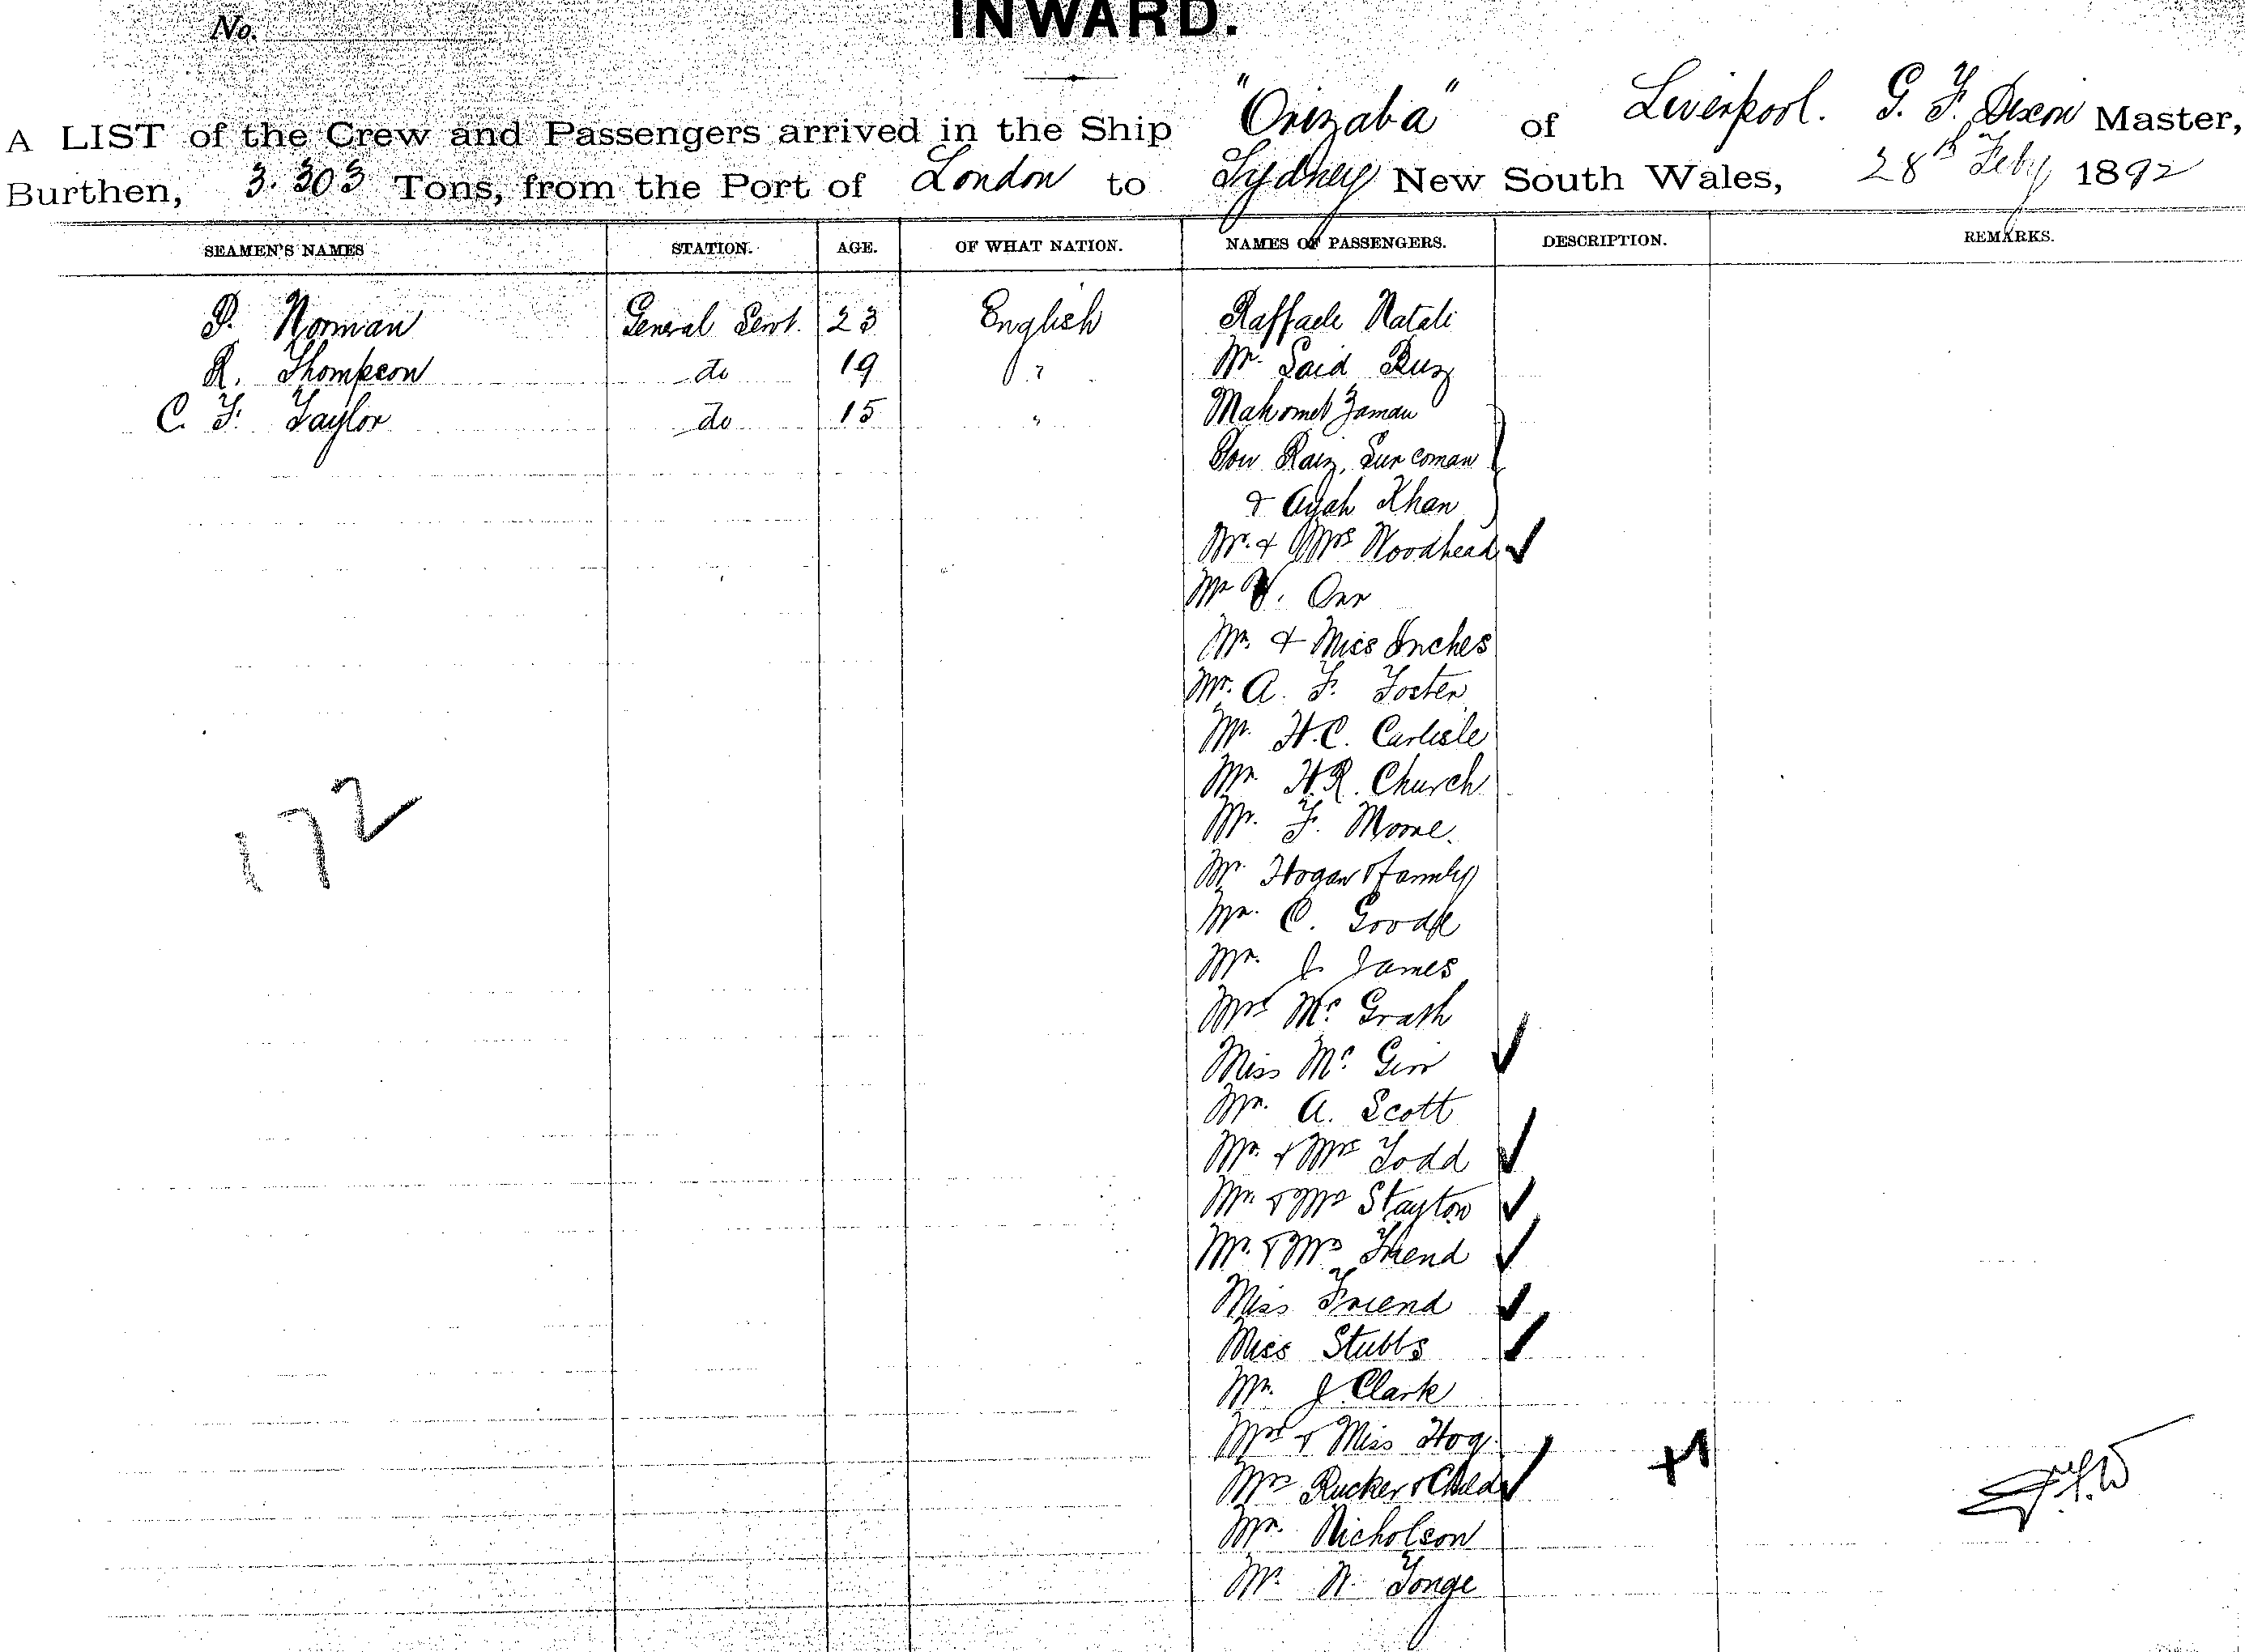 No.
INWARD.
A LIST of the Crew and Passengers arrived in the Ship "Orizaba" of Liverpool. G. F. Dixon Master,
Burthen, 3.303 Tons, from the Port of London to Sydney New South Wales, 28th Feby 1892
SEAMEN'S NAMES STATION. AGE. OF WHAT NATION. NAMES OF PASSENGERS. DESCRIPTION. REMARKS.
P. Norman General Servt. 23 English Raffaele Natali
R. Thompson do 19 " Mr. Said
C. F. Taylor do 15 " Mahomet Zaman
& Ayah Khan
Mr. & Mrs Woodhead
Mr Orr
Mr. & Miss Inches
Mr. A. F. Foster
Mr. H.C. Carlisle
Mr. H.R. Church
Mr. F.
Mr. Hogan & family
172
Mr. C.
Mr. J. James
Mrs Mc Grath
Miss Mc Girr
Mr. A. Scott
Mr. & Mrs Todd
Mr. & Mrs Stayton
Mr. & Mrs Friend
Miss Friend
Miss Stubbs
Mr. J. Clark
Mrs & Miss Hog
+1
Mrs Rucker & Child
Mr. Nicholson
Mr. W. Tonge